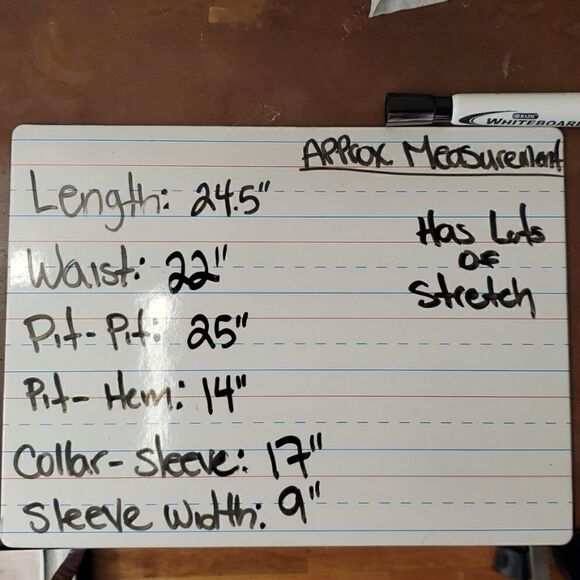 BAZIC
WHITEBOARD
Approx Measurement
Length: 24.5"
Has Lots
of
Stretch
Waist: 22"
Pit-Pit: 25"
Pit-Hem: 14"
Collar-Sleeve: 17"
Sleeve Width: 9"